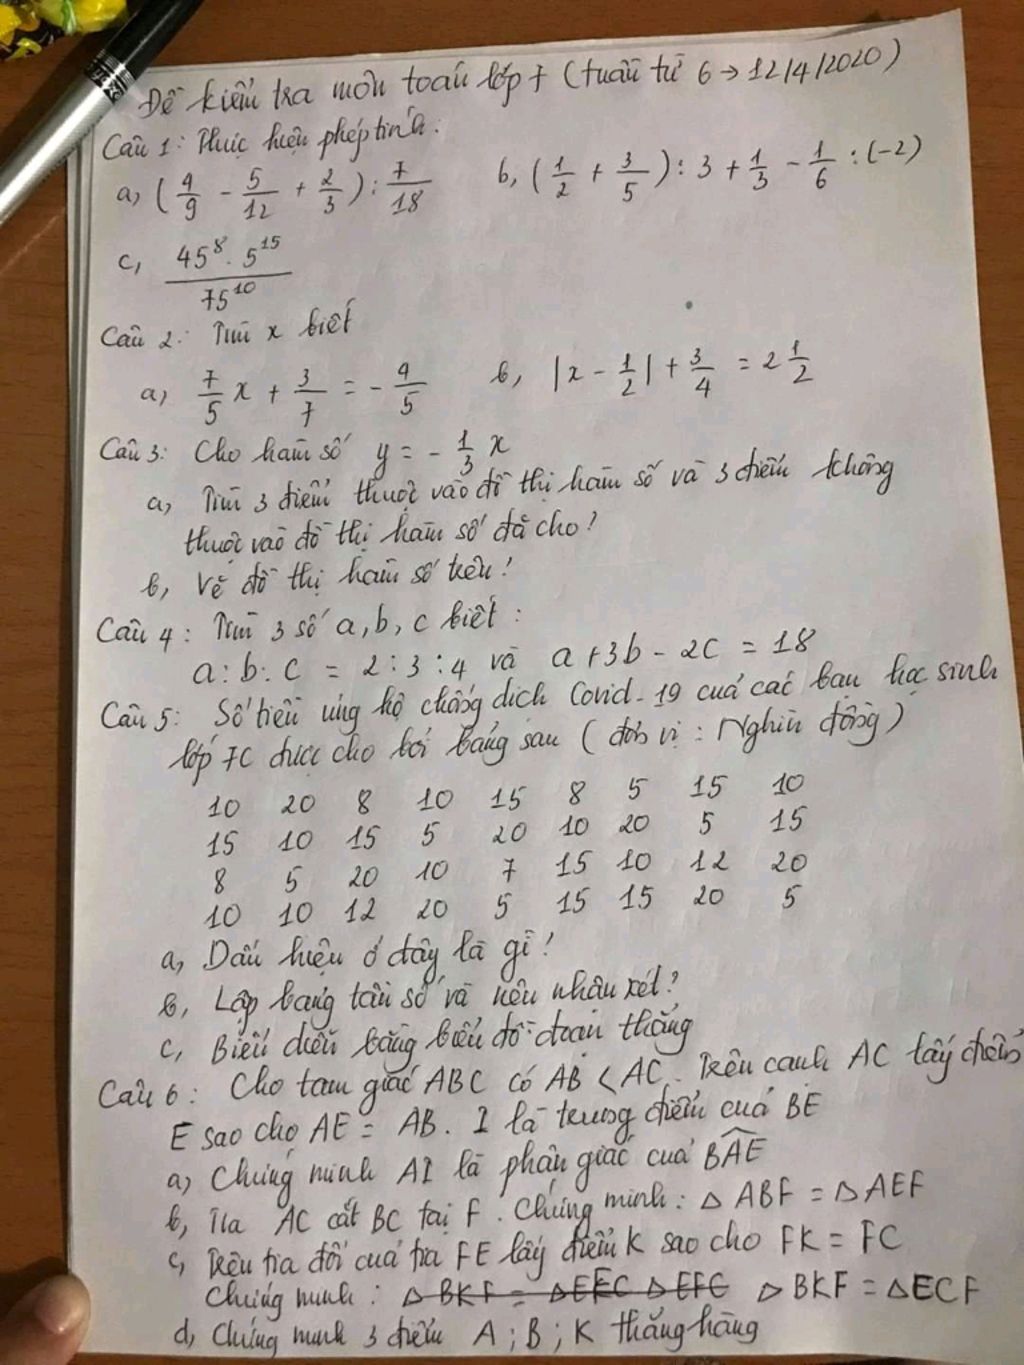 Đề kiểm tra môn toán lớp 7 (tuần từ 6 → 12/4/2020)
Câu 1: Thực hiện phép tính:
a, (4/9 - 5/12 + 2/3) : 7/18 b, (1/2 + 3/5) : 3 + 1/3 - 1/6 : (-2)
c, 45⁸ . 5¹⁵ / 75¹⁰
Câu 2: Tìm x biết
a, 7/5 x + 3/7 = - 4/5 b, |x - 1/2| + 3/4 = 2 1/2
Câu 3: Cho hàm số y = - 1/3 x
a, Tìm 3 điểm thuộc vào đồ thị hàm số và 3 điểm không
thuộc vào đồ thị hàm số đã cho?
b, Vẽ đồ thị hàm số trên!
Câu 4: Tìm 3 số a, b, c biết:
a : b : c = 2 : 3 : 4 và a + 3b - 2c = 18
Câu 5: Số tiền ủng hộ chống dịch Covid-19 của các bạn học sinh
lớp 7C được cho bởi bảng sau (đơn vị: Nghìn đồng)
10 20 8 10 15 8 5 15 10
15 10 15 5 20 10 20 5 15
8 5 20 10 7 15 10 12 20
10 10 12 20 5 15 15 20 5
a, Dấu hiệu ở đây là gì!
b, Lập bảng tần số và nêu nhận xét?
c, Biểu diễn bằng biểu đồ đoạn thẳng
Câu 6: Cho tam giác ABC có AB < AC. Trên cạnh AC lấy điểm
E sao cho AE = AB. I là trung điểm của BE
a, Chứng minh AI là phân giác của BAE
b, Tia AC cắt BC tại F. Chứng minh: △ ABF = △AEF
c, Trên tia đối của tia FE lấy điểm K sao cho FK = FC
Chứng minh: △ BKF = △EFC △EFC △ BKF = △ECF
d, Chứng minh 3 điểm A; B; K thẳng hàng